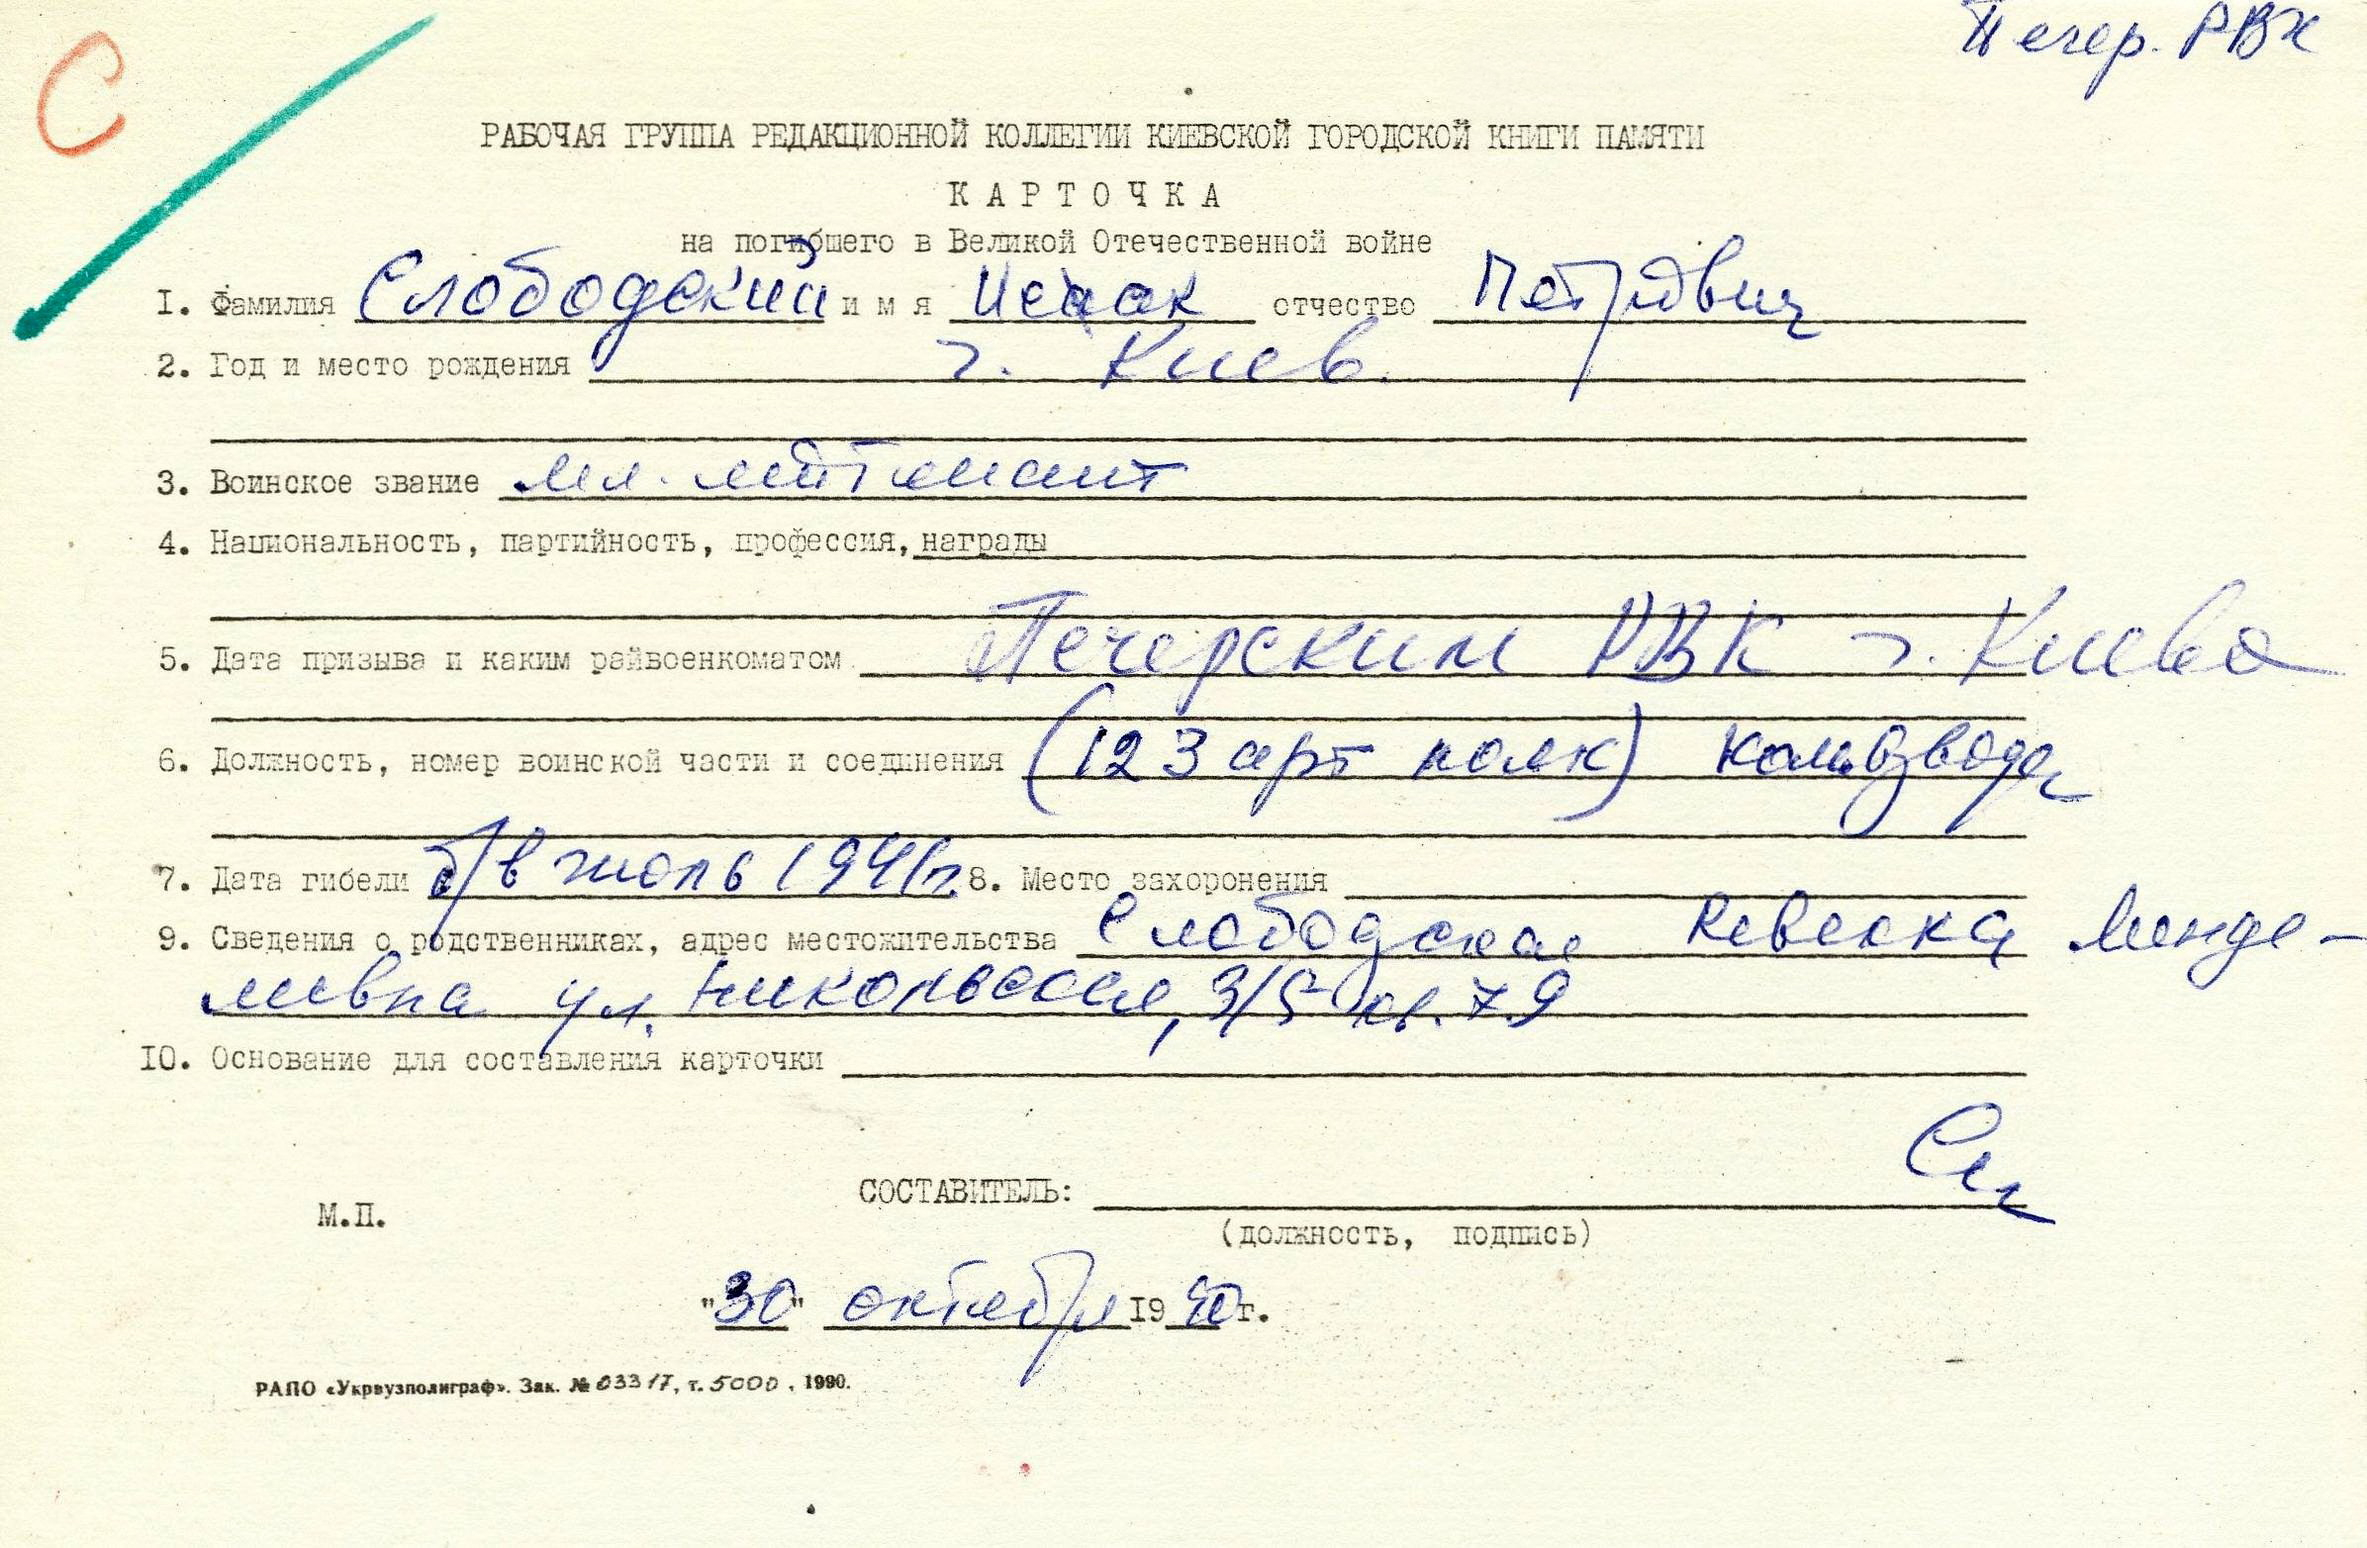 С
Печер. РВК
РАБОЧАЯ ГРУППА РЕДАКЦИОННОЙ КОЛЛЕГИИ КИЕВСКОЙ ГОРОДСКОЙ КНИГИ ПАМЯТИ
КАРТОЧКА
на погибшего в Великой Отечественной войне
1. Фамилия Слободский имя Исаак отчество Петрович
2. Год и место рождения г. Киев.
3. Воинское звание мл. лейтенант
4. Национальность, партийность, профессия, награды
5. Дата призыва и каким райвоенкоматом Печерским РВК г. Киева
6. Должность, номер воинской части и соединения (123 арт полк) ком.взвода
7. Дата гибели б/в июль 1941г. 8. Место захоронения
9. Сведения о родственниках, адрес местожительства Слободская Ревекка Менде-
левна ул. Никольская, 3/5 кв. 79
10. Основание для составления карточки
СОСТАВИТЕЛЬ:
М.П.
(должность, подпись)
"30" октября 1990г.
РАПО «Укрвузполиграф». Зак. № 03317, т. 5000, 1990.